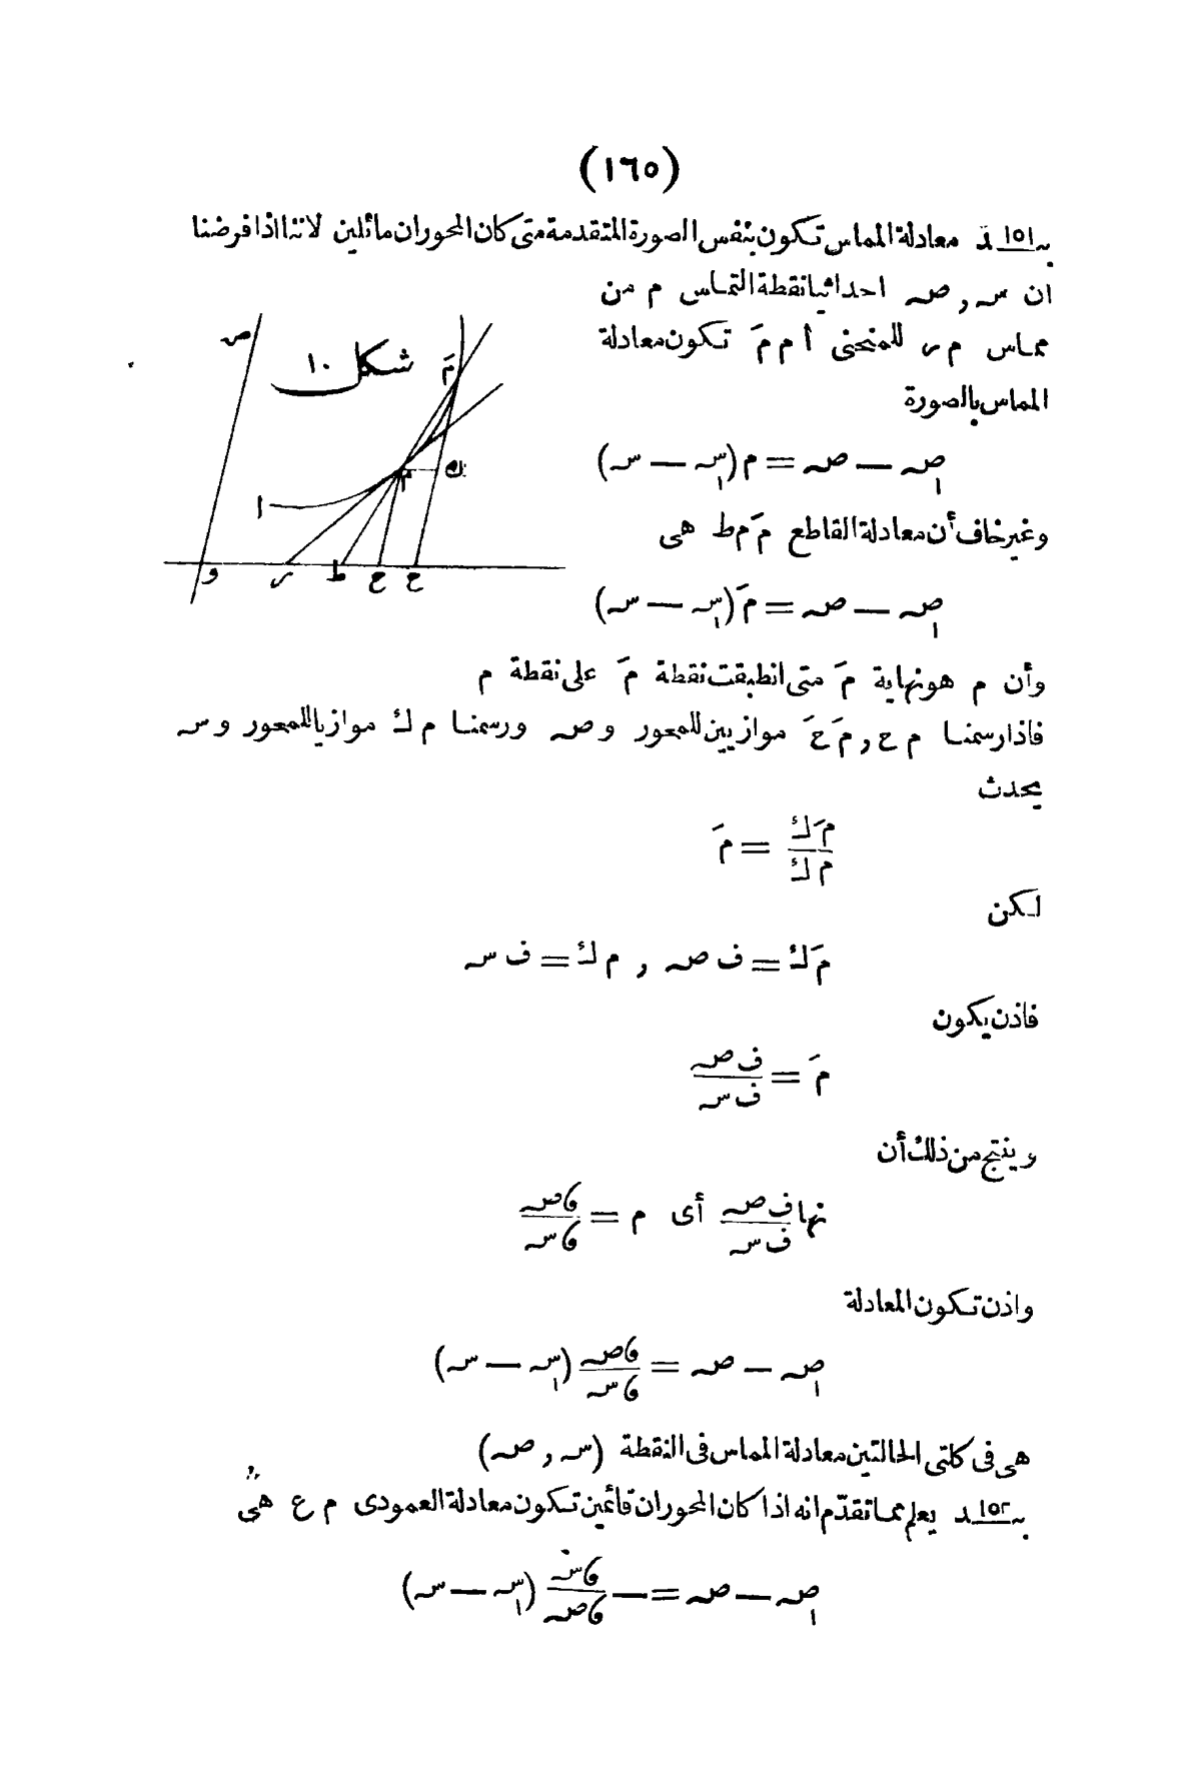 (١٦٥)
بـ١٥١ـد معادلة المماس تكون بنفس الصورة المتقدمة متى كان المحوران مائلين لاننا اذا فرضنا
ان سـ , صـ احداثيا نقطة التماس م من
مماس م ر للمنحنى ا م مَ تكون معادلة
المماس بالصورة
صـ١ — صـ = م (سـ١ — سـ)
وغير خاف أن معادلة القاطع مَ م ط هى
صـ١ — صـ = مَ (سـ١ — سـ)
وأن م هو نهاية مَ متى انطبقت نقطة مَ على نقطة م
شكل ١٠
صـ
مَ
م
ك
ا
و ر ط ح ح
فاذا رسمنا م ح , مَ حَ موازيين للمحور و صـ ورسمنا م ك موازيا للمحور و سـ
يحدث
مَ ك / م ك = مَ
لكن
مَ ك = ف صـ , م ك = ف سـ
فاذن يكون
مَ = ف صـ / ف سـ
وينتج من ذلك أن
نها ف صـ / ف سـ أى م = ءصـ / ءسـ
واذن تكون المعادلة
صـ١ — صـ = ءصـ / ءسـ (سـ١ — سـ)
هى فى كلتى الحالتين معادلة المماس فى النقطة (سـ , صـ)
بـ١٥٢ـد يعلم مما تقدّم انه اذا كان المحوران قائمين تكون معادلة العمودى م ع هى
صـ١ — صـ = — ءسـ / ءصـ (سـ١ — سـ)